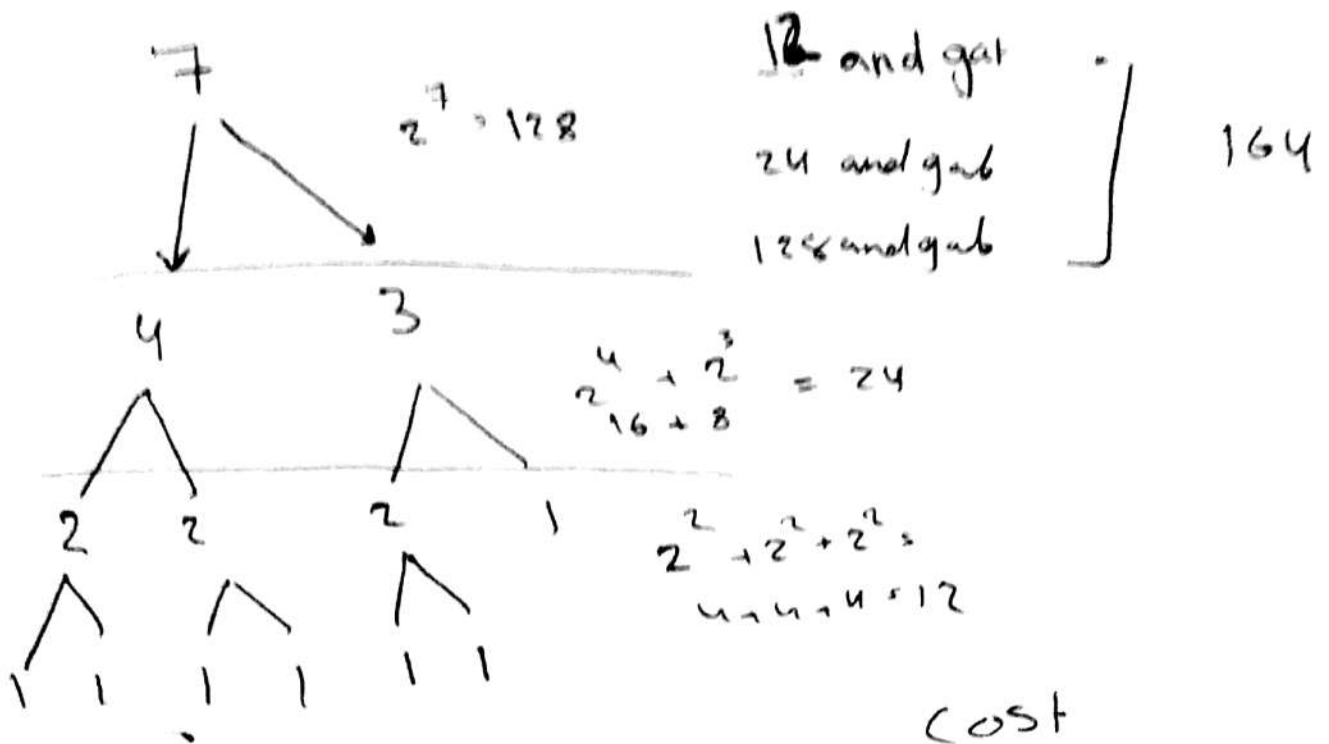 7
2^7 = 128
12 and gat
24 and gab
128 and gab
164
4 3
2^4 + 2^3 = 24
16 + 8
2 2 2 1
2^2 + 2^2 + 2^2 =
4 + 4 + 4 = 12
1 1 1 1 1 1
cost